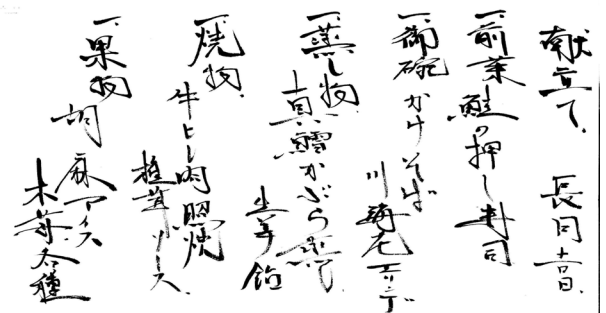 献立て 長月 吉日
一、前菜 鮭の押し寿司
一、御碗 かけそば
川海老
一、蒸し物 真鱈かぶら蒸し
生姜餡
一、焼物 牛ヒレ肉照焼
ソース
一、果物 胡麻アイス
水菓各種